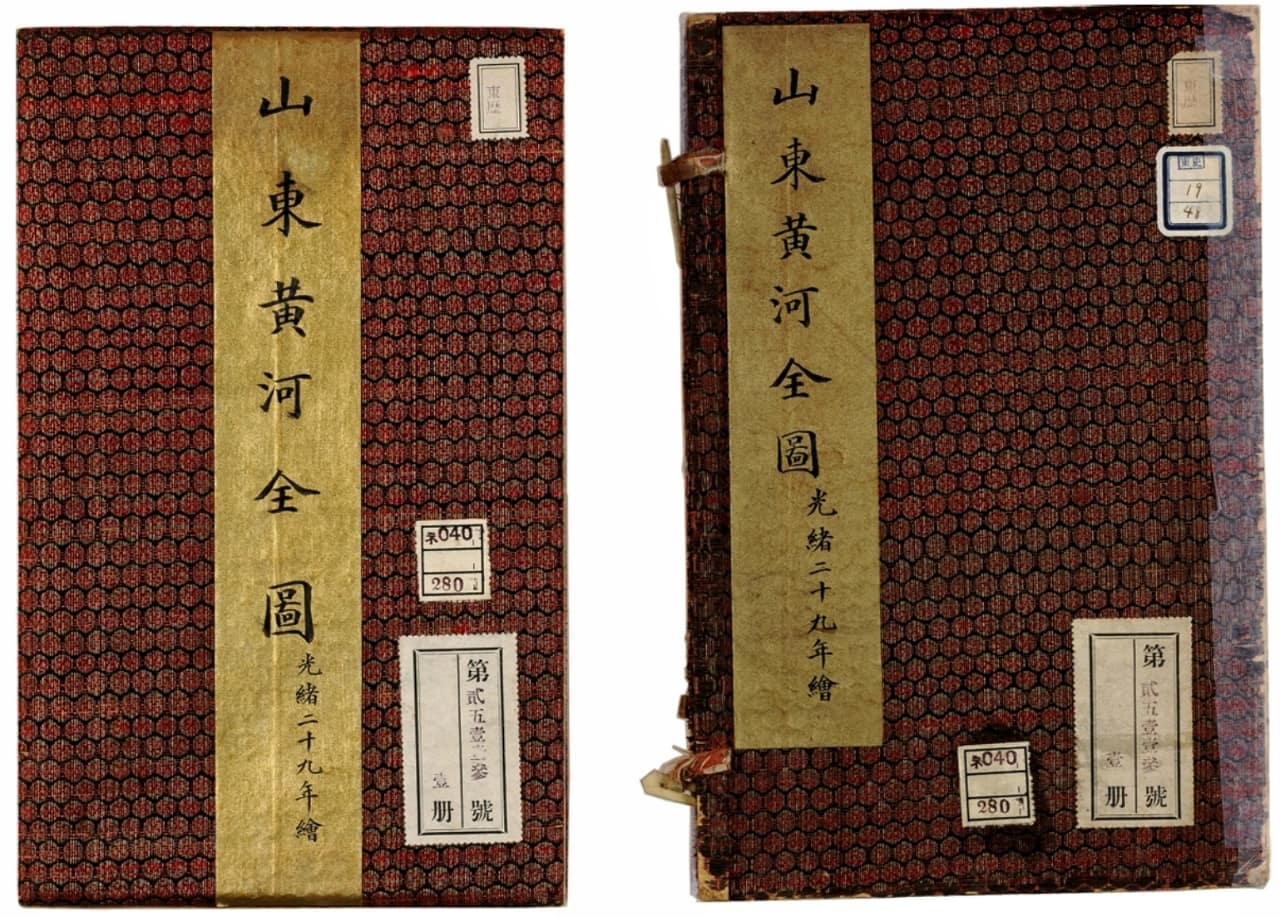 山東黃河全圖
光緒二十九年繪
東歴
ネ040
280
第貳五壹壹參號
壹冊
山東黃河全圖
光緒二十九年繪
東歴
東史
19
48
ネ040
280
第貳五壹壹參號
壹冊